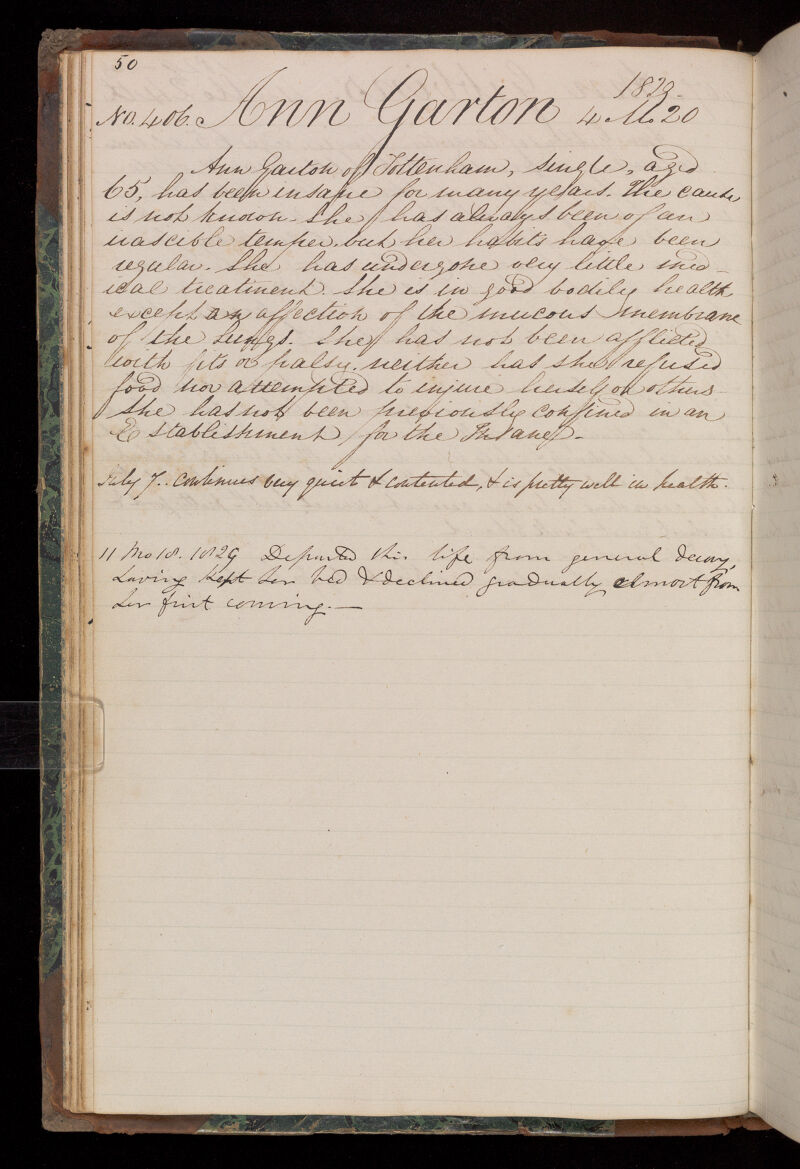 50
1829
No. 406. Ann Garton 4 Mo 20
Ann Garton of Tottenham, single, aged
65, has been insane for many years. The cause
is not known. She has always been of an
irascible temper but her habits have been
regular. She has undergone very little med-
ical treatment. She is in good bodily health
except an affection of the mucous membrane
of the lungs. She has not been afflicted
with fits or palsy. neither has she refused
food nor attempted to injure herself or others
She has not been previously confined in an
Establishment for the Insane.
July 7. continues very quiet & contented, & is pretty well in health.
11 Mo 18. 1829 Departed this life from general decay,
having kept her bed & declined gradually almost from
her first coming.—